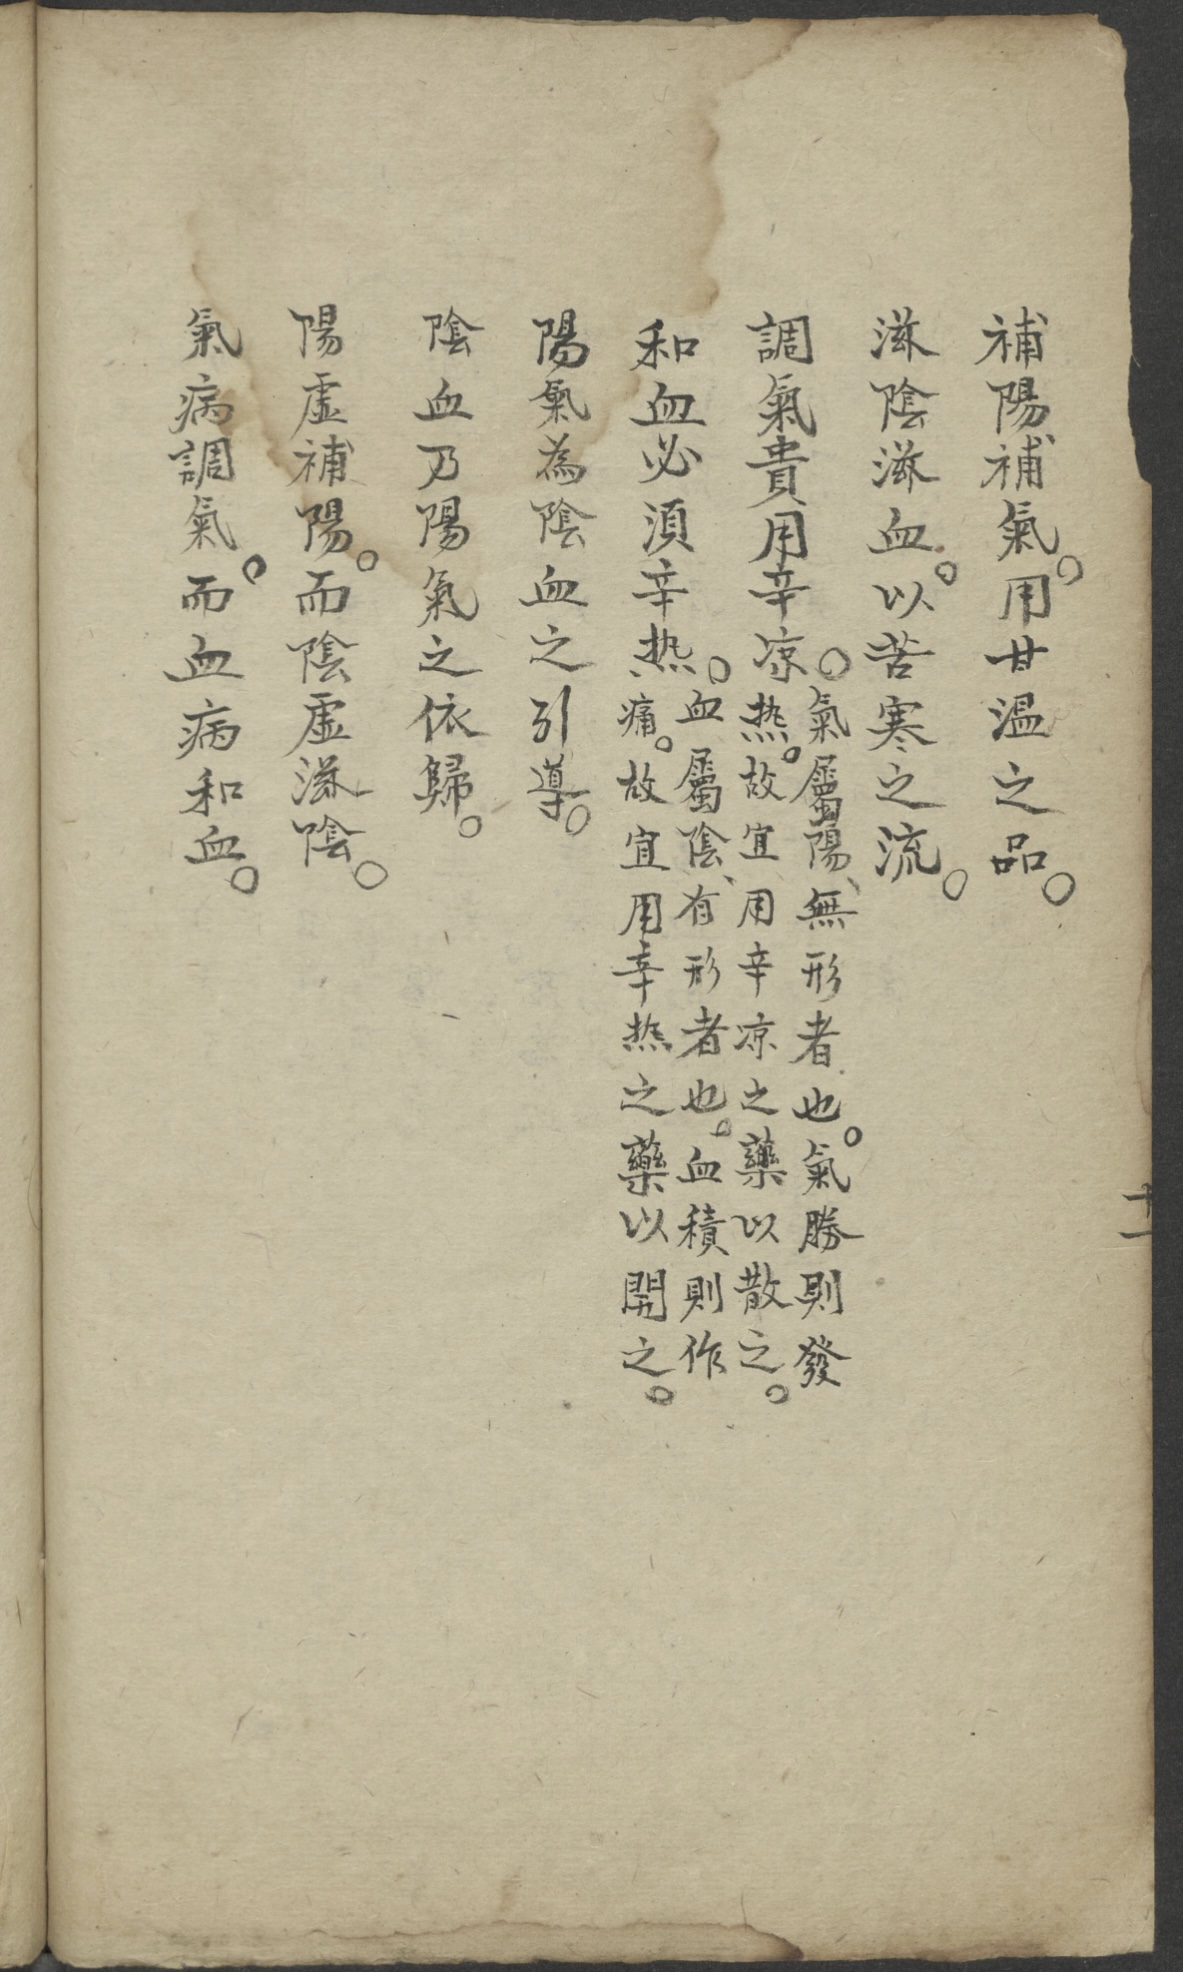 補陽補氣。用甘温之品。
滋陰滋血。以苦寒之流。
調氣貴用辛凉。氣屬陽、無形者也。氣勝則發
热。故宜用辛凉之藥以散之。
和血必須辛热。血屬陰、有形者也。血積則作
痛。故宜用辛热之藥以開之。
陽氣為陰血之引導。
陰血乃陽氣之依歸。
陽虛補陽。而陰虛滋陰。
氣病調氣。而血病和血。